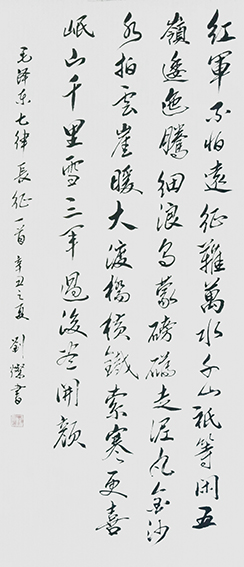 紅軍不怕遠征難萬水千山祇等閑五
嶺逶迤騰細浪烏蒙磅礴走泥丸金沙
水拍雲崖暖大渡橋橫鐵索寒更喜
岷山千里雪三軍過後盡開顏
毛澤東七律長征一首辛丑之夏劉燦書